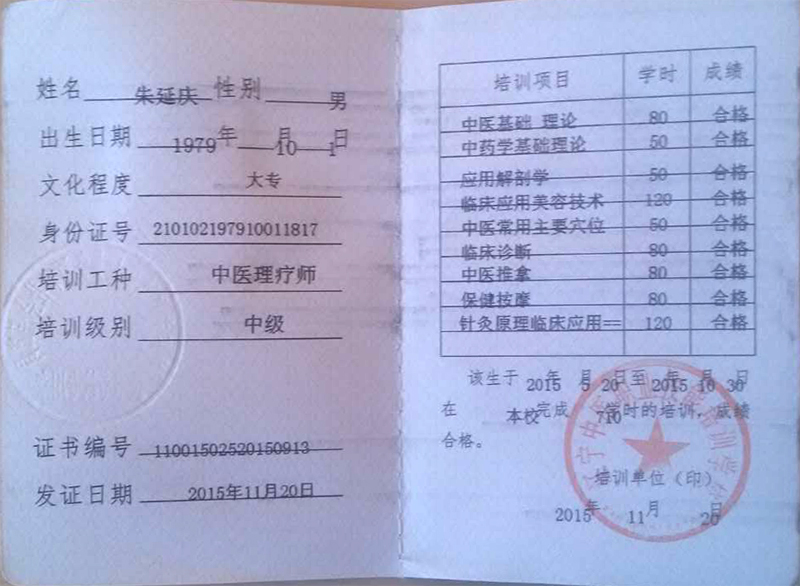 姓名 朱延庆 性别 男
出生日期 1979年 10月 1日
文化程度 大专
身份证号 210102197910011817
培训工种 中医理疗师
培训级别 中级
证书编号 11001502520150913
发证日期 2015年11月20日
培训项目 学时 成绩
中医基础 理论 80 合格
中药学基础理论 50 合格
应用解剖学 50 合格
临床应用美容技术 120 合格
中医常用主要穴位 50 合格
临床诊断 80 合格
中医推拿 80 合格
保健按摩 80 合格
针灸原理临床应用== 120 合格
该生于 2015年 5月 20日至 2015年 10月 30日
在 本校完成 710学时的培训，成绩
合格。
培训单位（印）
2015年 11月 20日